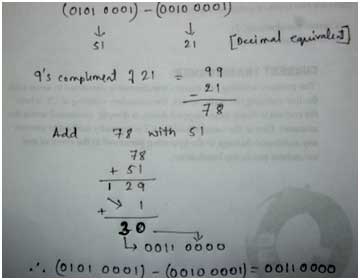 (0101 0001) - (0010 0001)
↓ ↓
51 21 [Decimal equivalent]
9's complement of 21 = 99
- 21
78
Add 78 with 51
78
+ 51
1 29
+ 1
30
↳ 0011 0000
∴ (0101 0001) - (0010 0001) = 0011 0000